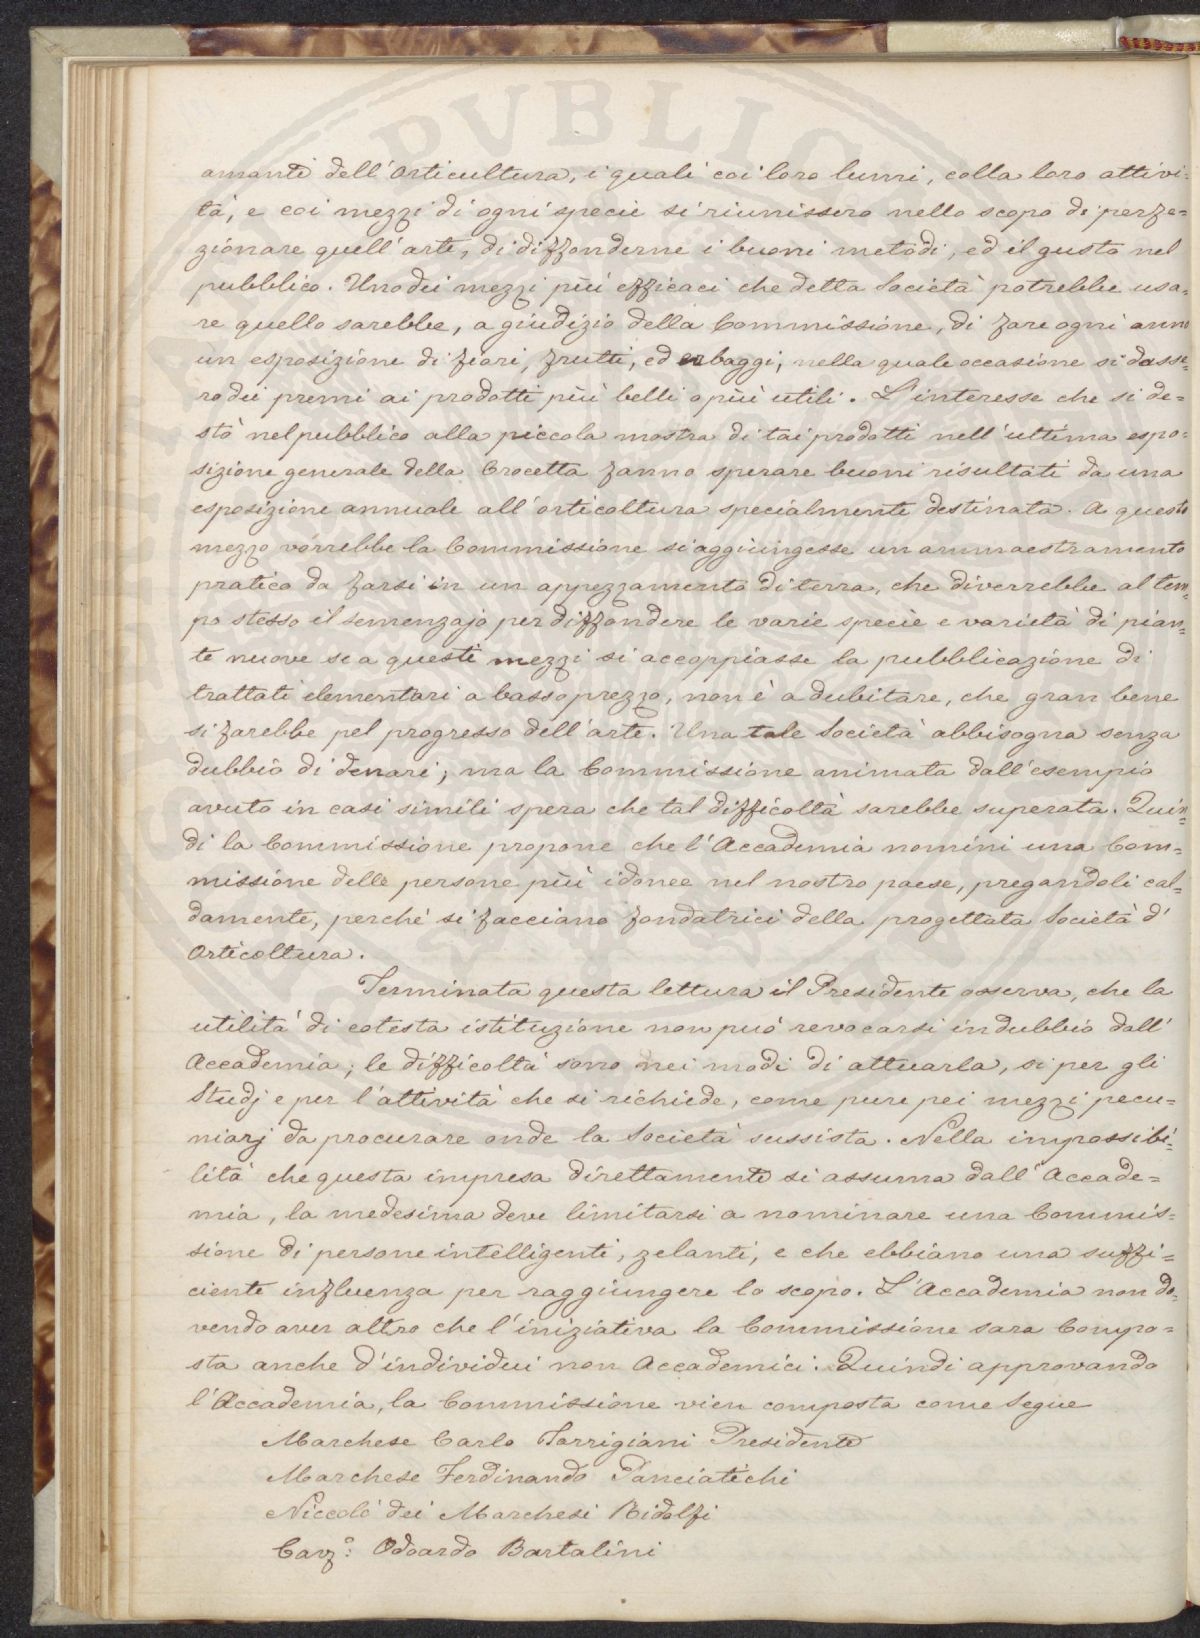 amanti dell'Orticultura, i quali coi loro lumi, colla loro attivi=
tà, e coi mezzi di ogni specie si riunissero nello scopo di perfe=
zionare quell'arte, di diffonderne i buoni metodi, ed il gusto nel
pubblico. Uno dei mezzi più efficaci che detta Società potrebbe usa=
re quello sarebbe, a giudizio della Commissione, di fare ogni anno
un esposizione di fiori, frutti, ed erbaggi, nella quale occasione si dasse=
ro dei premi ai prodotti più belli o più utili. L'interesse che si de=
stò nel pubblico alla piccola mostra di tai prodotti nell'ultima espo=
sizione generale della Crocetta fanno sperare buoni risultati da una
esposizione annuale all'orticoltura specialmente destinata. A questo
mezzo vorrebbe la Commissione si aggiungesse un ammaestramento
pratico da farsi in un appezzamento di terra, che diverrebbe al tem=
po stesso il semenzajo per diffondere le varie specie e varietà di pian=
te nuove se a questi mezzi si accoppiasse la pubblicazione di
trattati elementari a basso prezzo, non è a dubitare, che gran bene
si farebbe pel progresso dell'arte. Una tale Società abbisogna senza
dubbio di denari, ma la Commissione animata dall'esempio
avuto in casi simili spera che tal difficoltà sarebbe superata. Quin=
di la Commissione propone che l'Accademia nomini una Com=
missione delle persone più idonee nel nostro paese, pregandoli cal=
damente, perché si facciano fondatrici della progettata Società d'
Orticoltura.
Terminata questa lettura il Presidente osserva, che la
utilità di cotesta istituzione non può revocarsi in dubbio dall'
Accademia; le difficoltà sono nei modi di attuarla, si per gli
Studj e per l'attività che si richiede, come pure pei mezzi pecu=
niarj da procurare onde la Società sussista. Nella impossibi=
lità che questa impresa direttamente si assuma dall'Accade=
mia, la medesima deve limitarsi a nominare una Commis=
sione di persone intelligenti, zelanti, e che abbiano una suffi=
ciente influenza per raggiungere lo scopo. L'Accademia non do=
vendo aver altro che l'iniziativa la Commissione sara Compo=
sta anche d'individui non Accademici. Quindi approvando
l'Accademia, la Commissione vien composta come Segue
Marchese Carlo Torrigiani Presidente
Marchese Ferdinando Panciatichi
Niccolò dei Marchesi Ridolfi
Cavʳ: Odoardo Bartalini